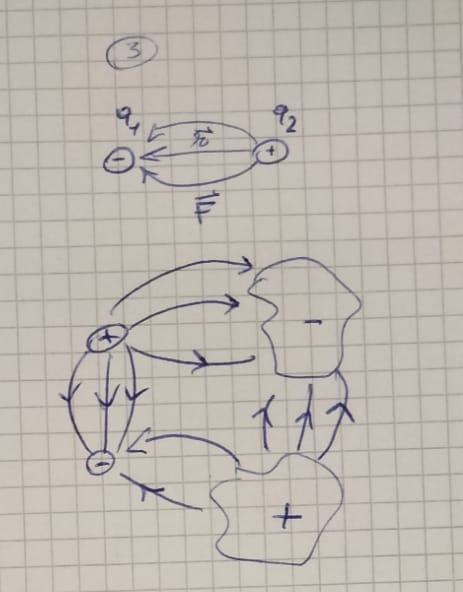 3
q₁ q₂
- r⃗ +
F⃗
-
+
-
+